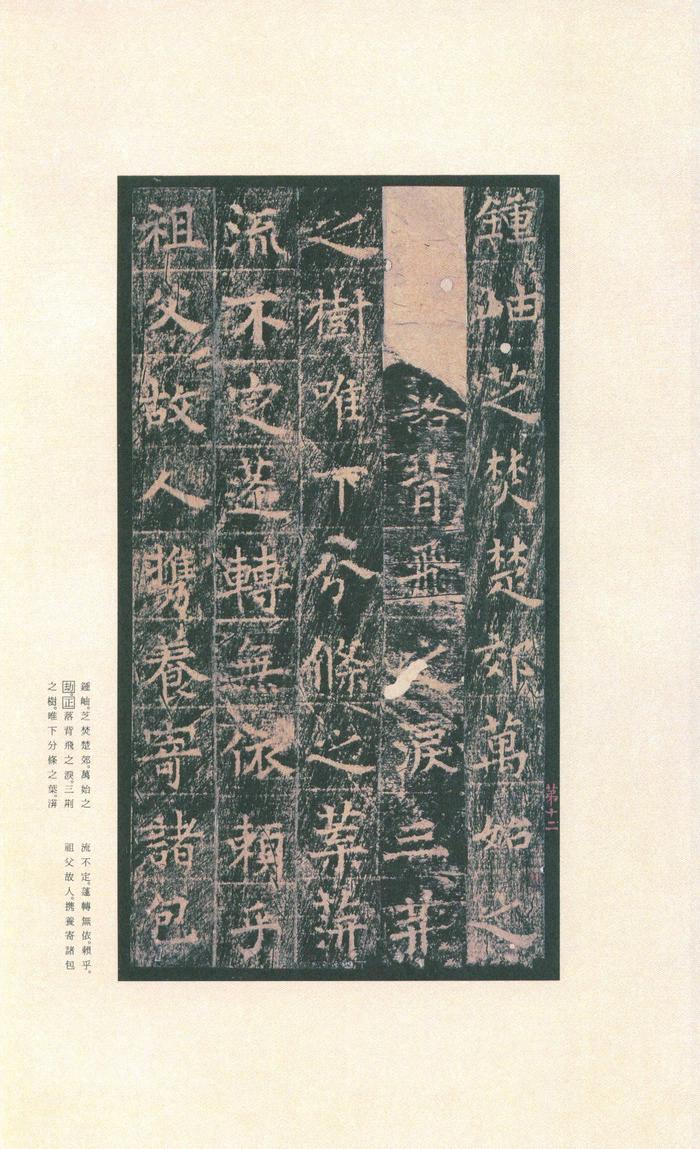 鍾岫芝焚楚郊萬始之
落背飛之淚三荊
之樹唯下分條之葉
流不定蓬轉無依賴乎
祖父故人攜養寄諸包
第十二
鍾岫。芝焚楚郊。萬始之
劫正落背飛之淚。三荊
之樹。唯下分條之葉。
流不定。蓬轉無依。賴乎。
祖父故人。携養寄諸包